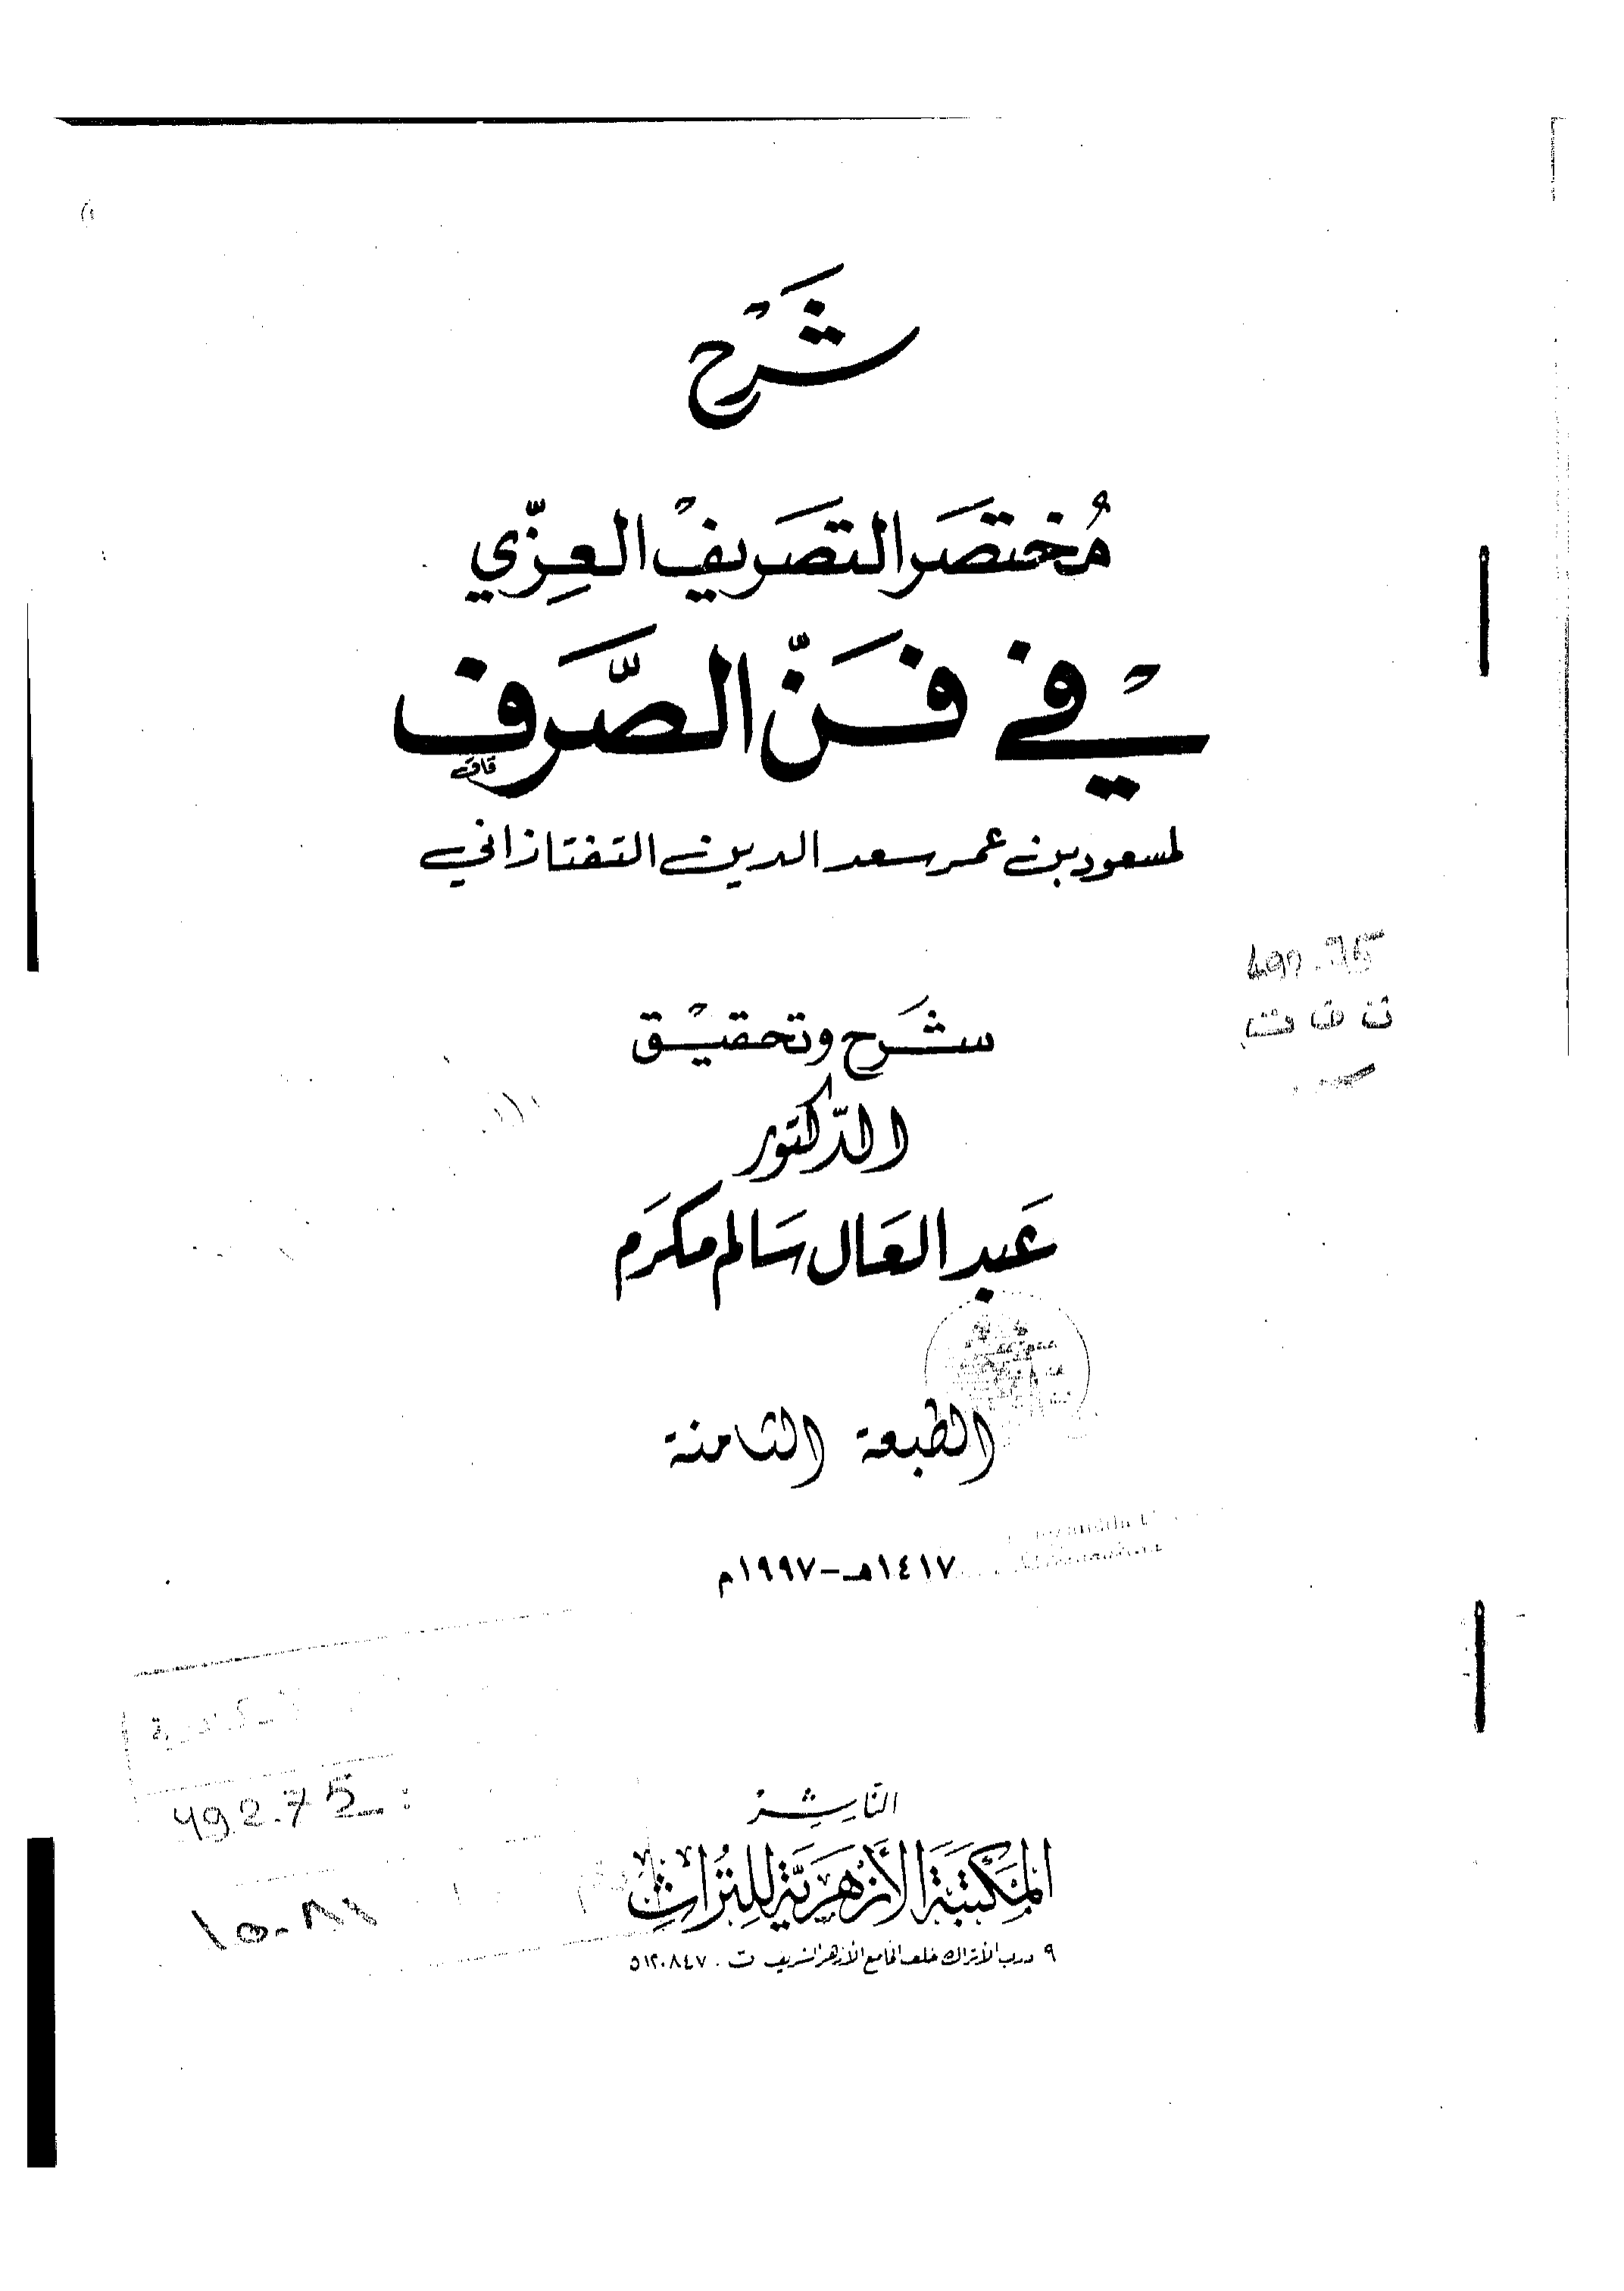 شَرْح
مُختصَر التصَريفْ العِزّي
في فَنّ الصَّرف
لمسعود بن عمر سعد الدين التفتازاني
492.75
ت ف ت
شَرح وتحقيْق
الدّكتور
عَبد العَال سَالم مكرَم
الطبعة الثامنة
١٤١٧هـ - ١٩٩٧م
492.75
النَاشِر
المَكتبَة الأزهَريَّة للتُراثِ
٩ درب الأتراك خلف الجامع الأزهر الشريف ت. ٥١٢٠٨٤٧